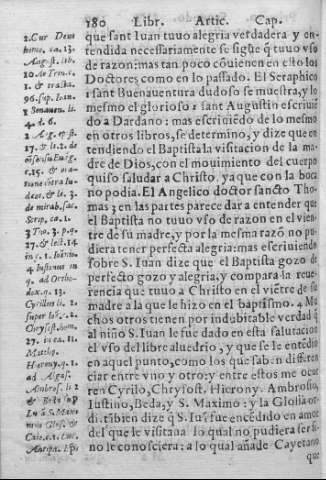 180 Libr. Artic. Cap.
que sant Iuan tuuo alegria verdadera y en-
tendida necessariamente se sigue q̃ tuuo vso
de razon: mas tan poco cõuienen en esto los
Doctores como en lo passado. El Seraphico
1 sant Buenauentura dudoso se muestra, y lo
mesmo el glorioso 2 sant Augustin escriuiẽ
do a Dardano: mas escriuiẽdo de lo mesmo
en otros libros, se determino, y dize que en
tendiendo el Baptista la visitacion de la ma
dre de Dios, con el mouimiento del cuerpo
quiso saludar a Christo, ya que con la boca
no podia. El Angelico doctor sancto Tho
mas 3 en las partes parece dar a entender que
el Baptista no tuuo vso de razon en el vien
tre de su madre, y por la mesma razõ no pu
diera tener perfecta alegria: mas escriuiendo
sobre S. Iuan dize que el Baptista gozo de
perfecto gozo y alegria, y compara la reue-
rencia que tuuo a Christo en el viẽtre de su
madre a la que le hizo en el baptismo. 4 Mu
chos otros tienen por indubitable verdad q̃
al niño S. Iuan le fue dado en esta salutacion
el vso del libre aluedrio, y que se le entẽdio
en aquel punto, como los que sabẽn differen
ciar entre vno y otro: y entre estos me ocur
ren Cyrilo, Chrysost. Hierony. Ambrosio,
Iustino, Beda, y S. Maximo: y la Glosa or-
di. tãbien dize q̃ S. Iuã fue encẽdido en amor
del que le visitaua lo qual no pudiera ser si
no le conosciera: a lo qual añade Cayetano
que
2. Cur Deus
homo. ca. 13.
August. lib.
3 Tho. 3. p. q.
27.
Cyrillus li. 2
Chrysost. hom.
27. in ca. 11.
Matth.
Hierony. q. 1.
ad Algas.
Ambros. li. 2